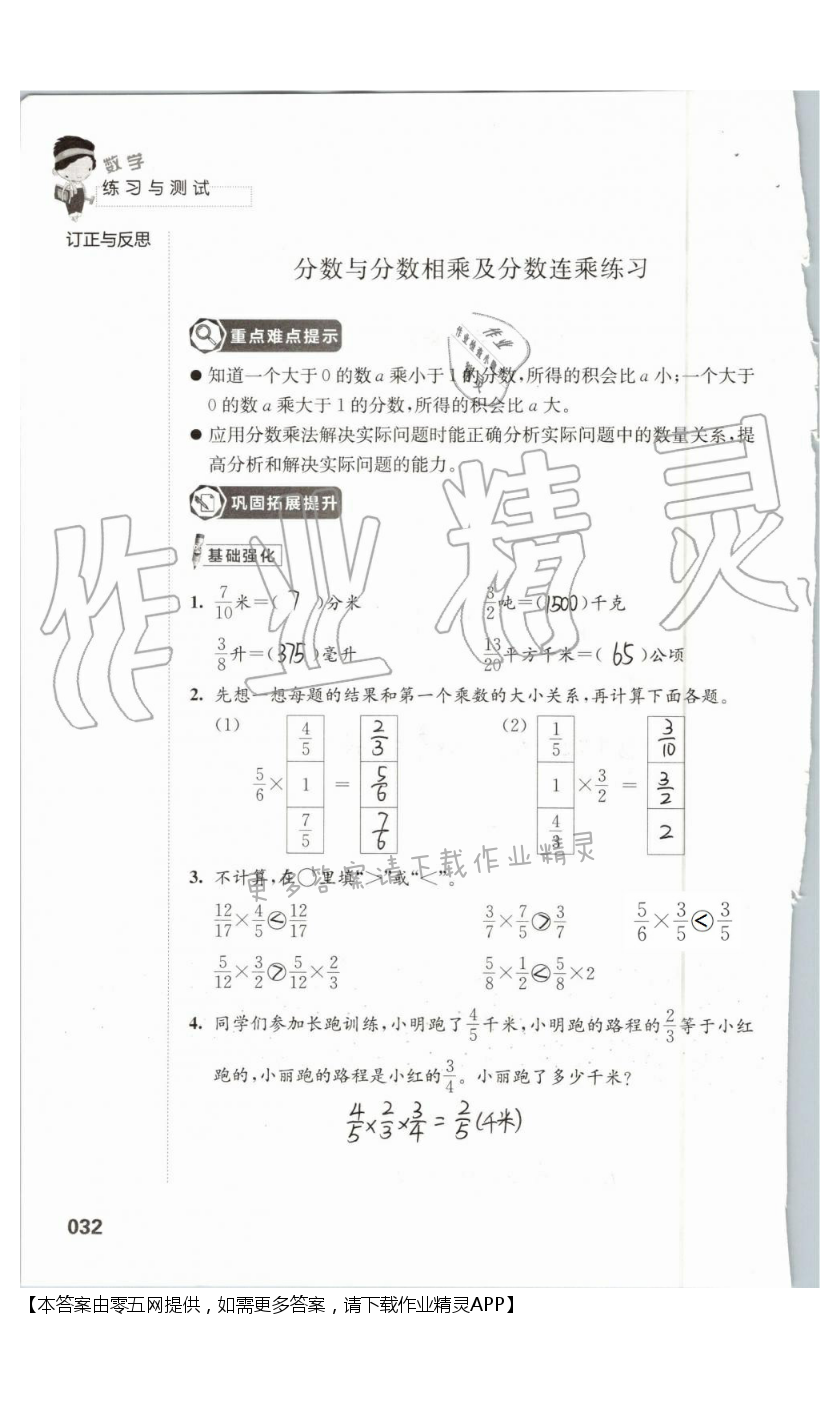 数学
练习与测试
订正与反思
分数与分数相乘及分数连乘练习
重点难点提示
●知道一个大于0的数a乘小于1的分数,所得的积会比a小;一个大于
0的数a乘大于1的分数,所得的积会比a大。
●应用分数乘法解决实际问题时能正确分析实际问题中的数量关系,提
高分析和解决实际问题的能力。
巩固拓展提升
基础强化
1. 7/10米=( 7 )分米 3/2吨=(1500)千克
3/8升=(375)毫升 13/20平方千米=( 65 )公顷
2. 先想一想每题的结果和第一个乘数的大小关系,再计算下面各题。
(1) 4/5 2/3 (2) 1/5 3/10
5/6× 1 = 5/6 1 ×3/2 = 3/2
7/5 7/6 4/3 2
3. 不计算,在○里填“>”或“<”。
12/17×4/5<12/17 3/7×7/5>3/7 5/6×3/5<3/5
5/12×3/2>5/12×2/3 5/8×1/2<5/8×2
4. 同学们参加长跑训练,小明跑了4/5千米,小明跑的路程的2/3等于小红
跑的,小丽跑的路程是小红的3/4。小丽跑了多少千米?
4/5×2/3×3/4=2/5(千米)
032
作业精灵
更多答案请下载作业精灵
【本答案由零五网提供，如需更多答案，请下载作业精灵APP】